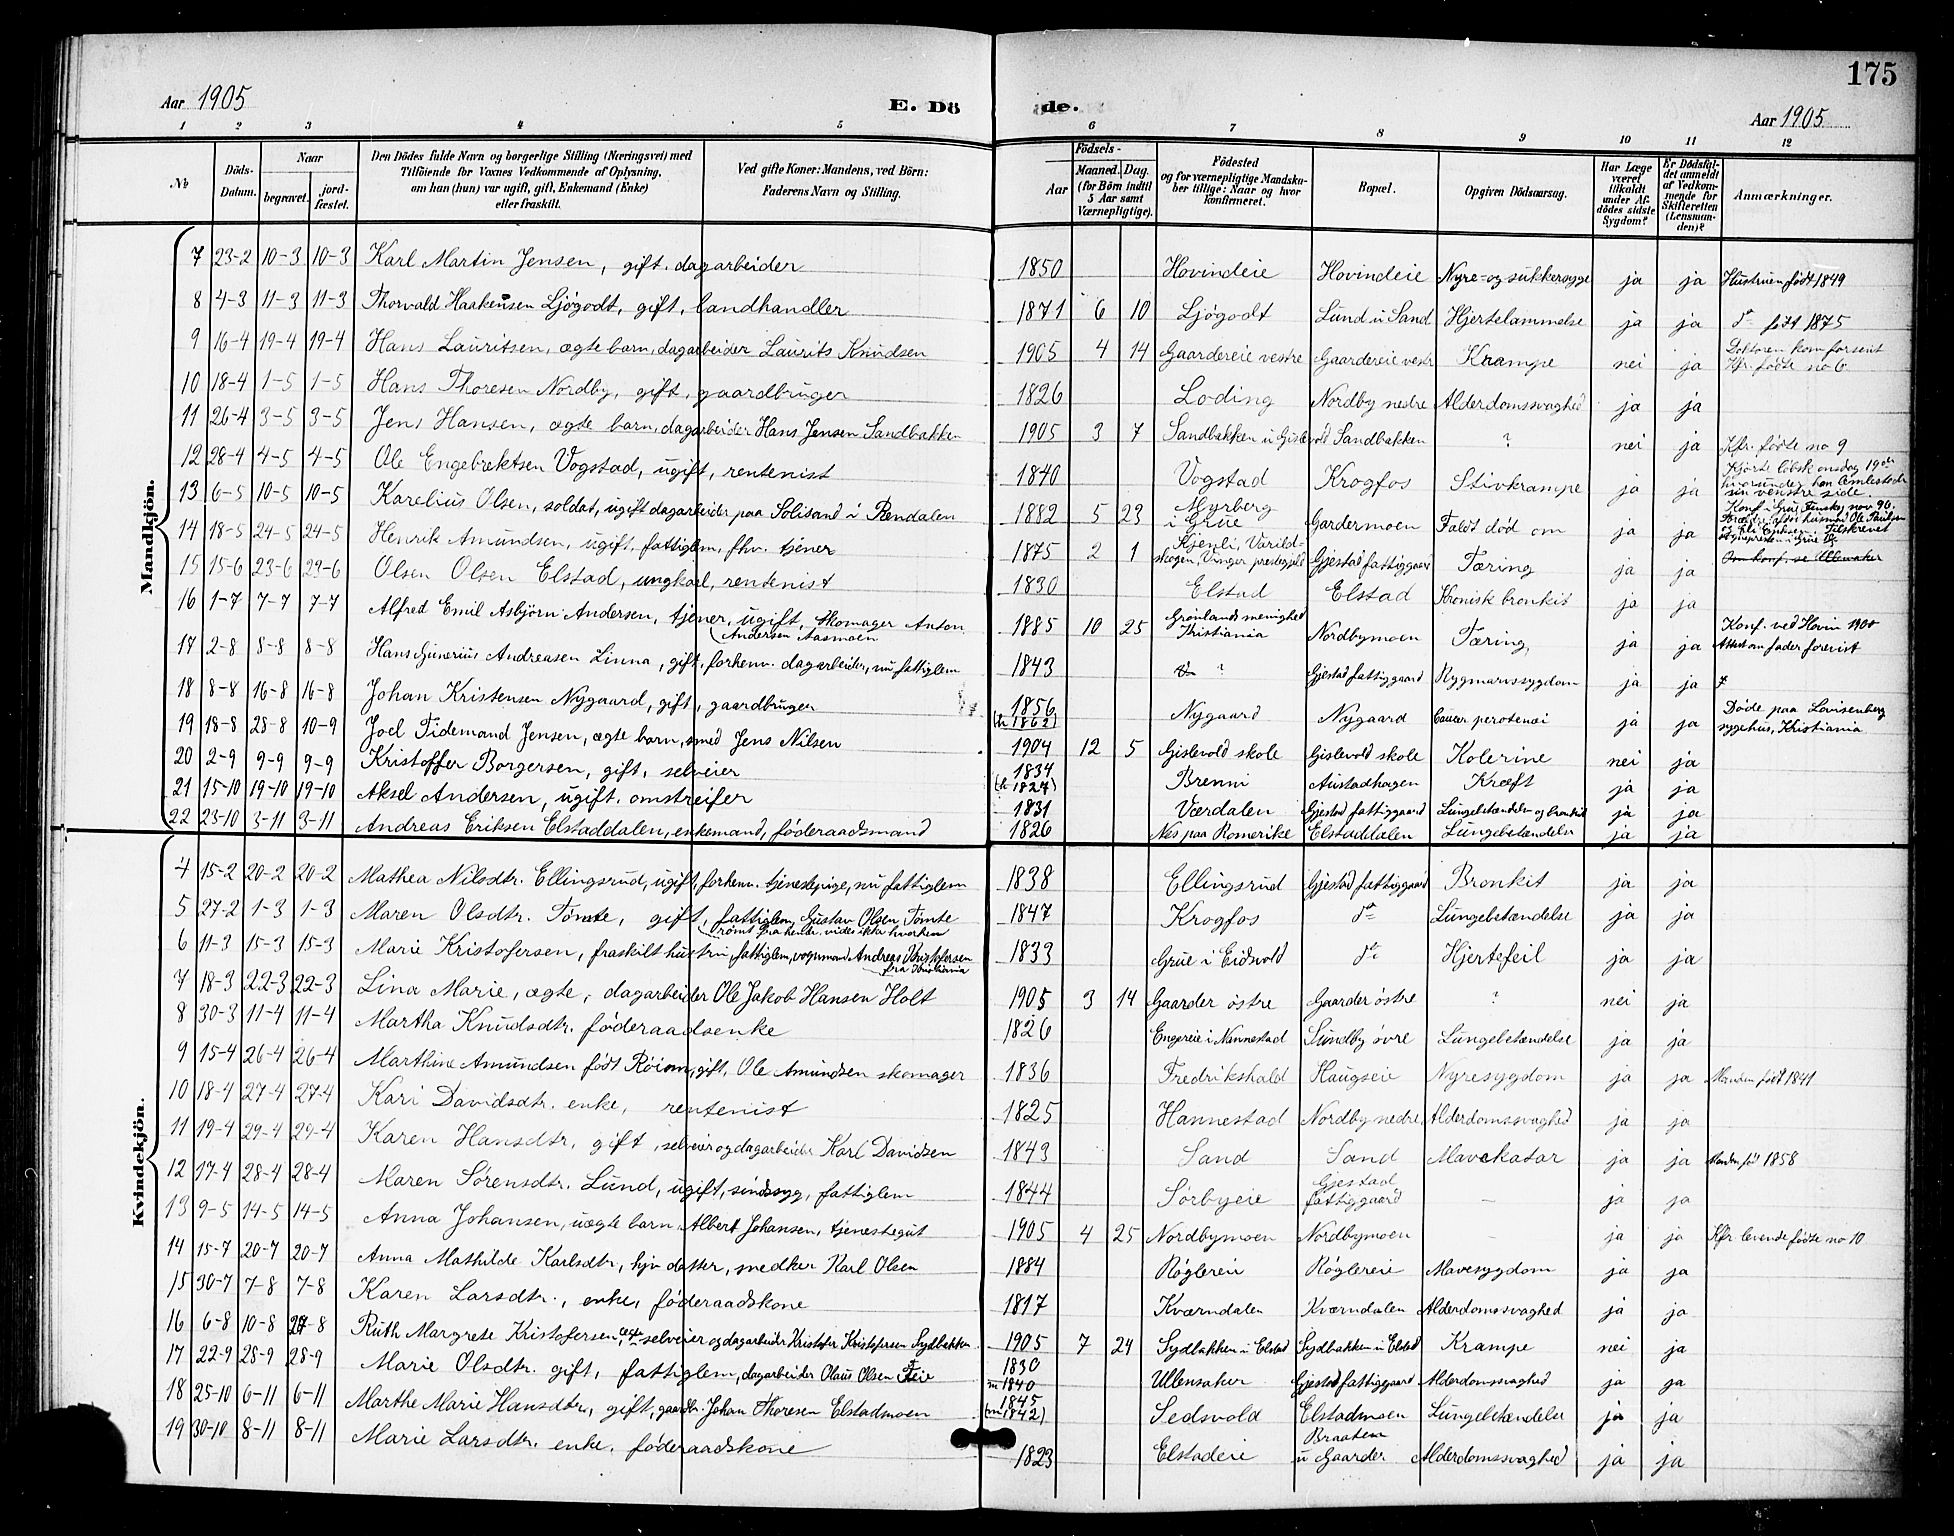 175
Aar 1905 E. Dö de. Aar 1905
1 2 3 4 5 6 7 8 9 10 11 12
No
Döds-Datum.
Naar
begravet.
jord-fæstet.
Den Dödes fulde Navn og borgerlige Stilling (Næringsvei) med
Tilföiende for Voxnes Vedkommende af Oplysning,
om han (hun) var ugift, gift, Enkemand (Enke)
eller fraskilt.
Ved gifte Koner: Mandens, ved Börn:
Faderens Navn og Stilling.
Födsels-
Aar
Maaned. Dag.
(for Börn indtil
5 Aar samt
Værnepligtige).
Födested
og for værnepligtige Mandska-
ber tillige: Naar og hvor
konfirmeret.
Bopæl.
Opgiven Dödsaarsag.
Har Læge
været
tilkaldt
under Af-
dödes sidste
Sygdom?
Er Dödsfal-
det anmeldt
af Vedkom-
mende for
Skifteretten
(Lensman-
den)?
Anmærkninger.
Mandkjön.
7 23-2 10-3 10-3 Karl Martin Jensen, gift. dagarbeider 1850 Hovindeie Hovindeie Nyre- og sukkersyge ja ja Hustruen født 1849
8 4-3 11-3 11-3 Thorvald Haakensen Ljøgodt, gift, landhandler 1871 6 10 Ljøgodt Lund u Sand Hjertelammelse ja ja do født 1875
9 16-4 19-4 19-4 Hans Lauritsen, ægte barn, dagarbeider Laurits Knudsen 1905 4 14 Gaardereie vestre Gaardereie vestr Krampe nei ja Doktoren kom forsent
Kfr. fødte no 6
10 18-4 1-5 1-5 Hans Thoresen Nordby, gift, gaardbruger 1826 Loding Nordby nedre Alderdomssvaghed ja ja
11 26-4 3-5 3-5 Jens Hansen, ægte barn, dagarbeider Hans Jensen Sandbakken 1905 3 7 Sandbakken u Gislevold Sandbakken ? nei ja Kfr. fødte no 9
12 28-4 4-5 4-5 Ole Engebrektsen Vogstad, ugift, rentenist 1840 Vogstad Krogfos Stivkrampe ja ja Kjørte løbsk onsdag 19de
sin venstre side.
13 6-5 10-5 10-5 Karelius Olsen, soldat, ugift dagarbeider paa Solisand i Rendalen 1882 5 23 Myrberg
i Grue Gardermoen Faldt død om ja ja
14 18-5 24-5 24-5 Henrik Amundsen, ugift, fattiglem, fhv. tjener 1875 2 1 Kjenli, Varild-
skogen, Vinger prestegjeld Gjestad fattiggaard Tæring ja ja Om konf. se Ullensaker
15 15-6 23-6 23-6 Olsen Olsen Elstad, ungkarl, rentenist 1830 Elstad Elstad Kronisk bronkit ja ja
16 1-7 7-7 7-7 Alfred Emil Asbjørn Andersen, tjener, ugift, skomager Anton
Andersen Aasmoen 1885 10 25 Grønlands menighed
Kristiania Nordbymoen Tæring, ja ja Konf. ved Hovin 1900
Attest om fader forevist
17 2-8 8-8 8-8 Hans Gunerius Andreasen Linna, gift, forhenv. dagarbeider, nu fattiglem 1843 ? Gjestad fattiggaard Rygmarvssygdom ja ja
18 8-8 16-8 16-8 Johan Kristensen Nygaard, gift, gaardbruger 1856
(h 1862) Nygaard Nygaard Cancer ja ja Døde paa Lovisenberg
sygehus, Kristiania
19 18-8 25-8 10-9 Joel Tidemand Jensen, ægte barn, smed Jens Nilsen 1904 12 5 Gislevold skole Gislevold skole Kolerine nei ja
20 2-9 9-9 9-9 Kristoffer Borgersen, gift, selveier 1834
(h 1827) Brenni Austadhagen Kræft ja ja
21 15-10 19-10 19-10 Aksel Andersen, ugift. omstreifer 1831 Værdalen Gjestad fattiggaard Lungebetændelse og bronkit ja ja
22 23-10 3-11 3-11 Andreas Eriksen Elstaddalen, enkemand, føderaadsmand 1826 Nes paa Romerike Elstaddalen Lungebetændelse ja ja
Kvindekjön.
4 15-2 20-2 20-2 Mathea Nilsdtr. Ellingsrud, ugift, forhenv. tjenestepige, nu fattiglem 1838 Ellingsrud Gjestad fattiggaard Bronkit ja ja
5 27-2 1-3 1-3 Maren Olsdtr. Tømte, gift, fattiglem, Gustav Olsen Tømte
(rømt fra hende, vides ikke hvorhen 1847 Krogfos do Lungebetændelse ja ja
6 11-3 15-3 15-3 Marie Kristofersen, fraskilt hustru, fattiglem, vognmand Andreas Kristofersen
fra Kristiania 1833 Grue i Eidsvold do Hjertefeil ja ja
7 18-3 22-3 22-3 Lina Marie, ægte, dagarbeider Ole Jakob Hansen Holt 1905 3 14 Gaarder østre Gaarder østre ? nei ja
8 30-3 11-4 11-4 Martha Knudsdtr. føderaadsenke 1826 Engereie i Nannestad Sundby øvre Lungebetændelse ja ja
9 15-4 26-4 26-4 Marthine Amundsen født Røiom, gift, Ole Amundsen skomager 1836 Fredrikshald Haugseie Nyresygdom ja ja Manden født 1841
10 18-4 27-4 27-4 Kari Davidsdtr. enke, rentenist 1825 Hannestad Nordby nedre Alderdomssvaghed ja ja
11 19-4 29-4 29-4 Karen Hansdtr, gift, selveier og dagarbeider Karl Davidsen 1843 Sand Sand Mavekatar ja ja Manden fød 1858
12 17-4 28-4 28-4 Maren Sørensdtr. Lund, ugift, sindssyg, fattiglem 1844 Sørbyeie Gjestad
fattiggaard — ja ja
13 9-5 14-5 14-5 Anna Johansen, uægte barn, Albert Johansen, tjenestegut 1905 4 25 Nordbymoen Nordbymoen — ja ja Kfr levende fødte no 10
14 15-7 20-7 20-7 Anna Mathilde Karlsdtr, hjv datter, snedker Karl Olsen 1884 Røglereie Røglereie Mavesygdom ja ja
15 30-7 7-8 7-8 Karen Larsdtr., enke, føderaadskone 1817 Kværndalen Kværndalen Alderdomssvaghed ja ja
16 6-8 10-8 27-8 Ruth Margrete Kristofersen, ægte selveier og dagarbeider Kristofer Kristofersen Sydbakken 1905 7 24 Sydbakken u Elstad Sydbakken u Elstad Krampe nei ja
17 22-9 28-9 28-9 Marie Olsdtr. gift, fattiglem, dagarbeider Olaus Olsen Feie 1830
m 1840 Ullensaker Gjestad fattiggaard Alderdomssvaghed ja ja
18 25-10 6-11 6-11 Marthe Marie Hansdtr, gift, gaardbr. Johan Thoresen Elstadmoen 1845
(m 1842) Sedsvold Elstadmoen Lungebetændelse ja ja
19 30-10 8-11 8-11 Marie Larsdtr. enke. føderaadskone 1823 Elstadeie Braaten
u Gaarder Alderdomssvaghed ja ja